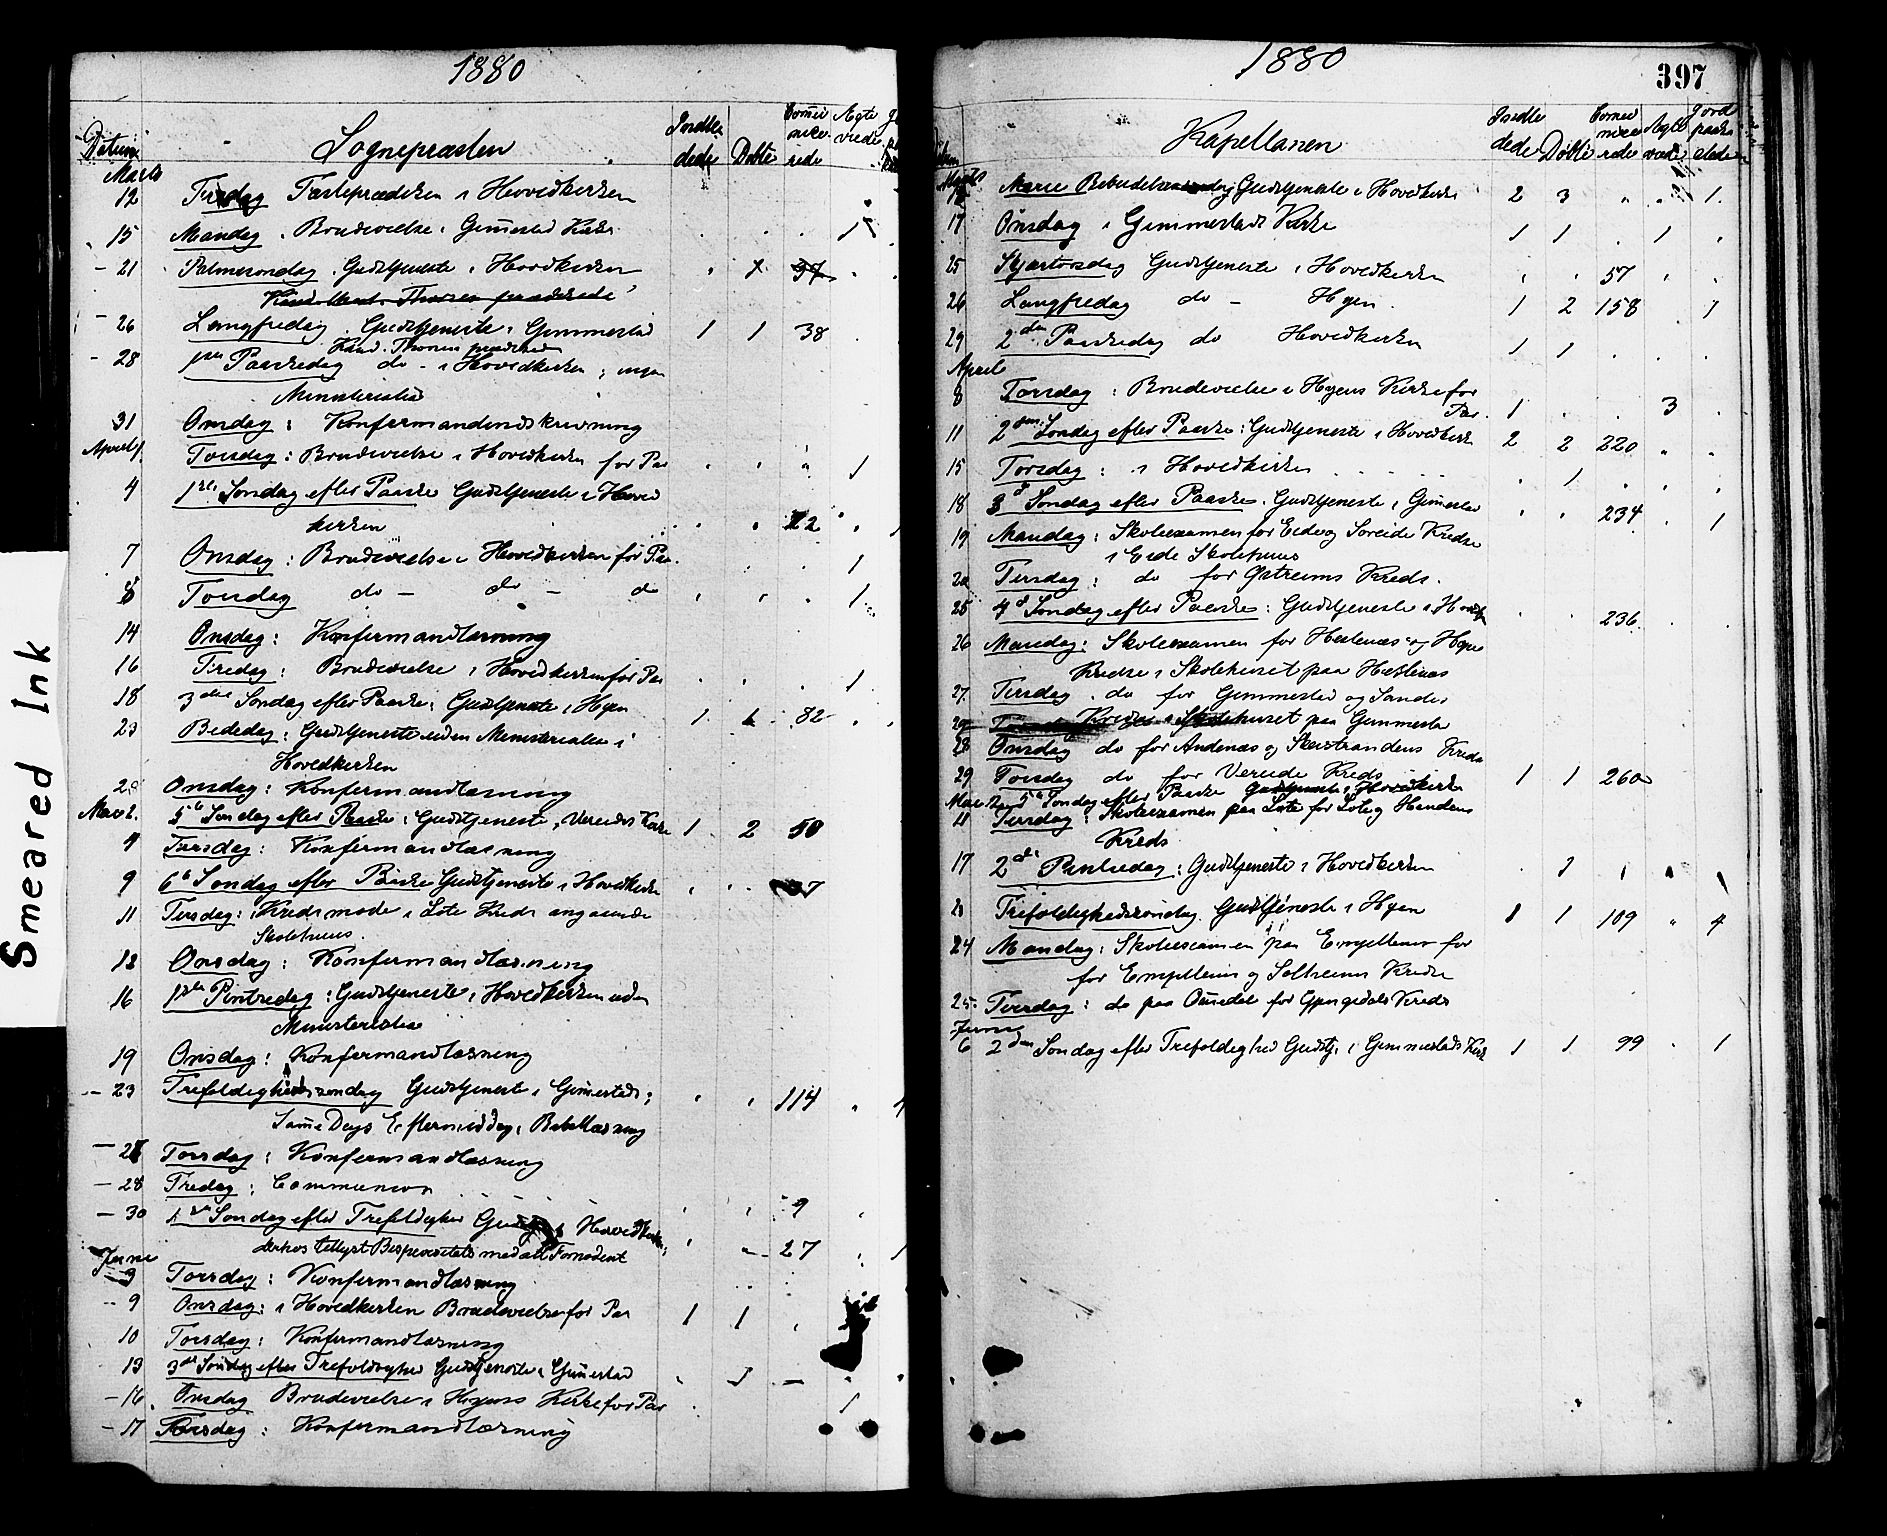 1880
Datum Sognepræsten Indle dede Døbte Comu nice rede Ægte viede
Marts
12 Fredag Fasteprædiken i Hovedkirken
15 Mandag Brudevielse i Gimestad Kirke 1
- 21 Palmesøndag Gudstjeneste i Hovedkirken 37
Thorsen prædikede
- 26 Langfredag Gudstjeneste i Gimmestad 1 1 38
Kand. Thorsen prædiked
- 28 1ste Paaskedag do - i Hovedkirken; ingen
Ministerialia
31 Onsdag: Konfirmandindskrivning
April 1 Torsdag: Brudevielse i Hovedkirken for Par 1
4 1ste Søndag efter Paaske Gudstjeneste i Hoved
kirken
7 Onsdag: Brudevielse i Hovedkirken for Par. 1
8 Torsdag do - do - do 1
14 Onsdag: Konfirmandlæsning
16 Fredag: Brudevielse i Hovedkirken for Par 1
18 3die Søndag efter Paaske: Gudstjeneste i Hyen 1 82
23 Bededag: Gudstjeneste uden Ministerialia i
Hovedkirken
28 Onsdag: Konfirmandlæsning
Mai 2. 5te Søndag efter Paaske: Gudstjeneste, Vereides Kirke 1 2 50
4 Tirsdag: Konfirmandlæsning
9 6te Søndag efter Paaske Gudstjeneste i Hovedkirke
11 Tirsdag: Kredsmøde i Lote Kreds angaaende
Skolehuus.
12 Onsdag: Konfirmandlæsning
16 1ste Pintsedag: Gudstjeneste i Hovedkirken uden
Ministerialia
19 Onsdag: Konfirmandlæsning
-- 23 Trefoldighedssøndag Gudstjeneste i Gimestad; 114
Samme Dags Eftermiddag Bibellæsning
- 27 Torsdag: Konfirmandlæsning
- 28 Fredag: Communion 9
- 30 1ste Søndag efter Trefoldighed Gudstj i Hovedkirken;
derhos tillyst Bispevisitats med alt Fornødent 27
Juni
3 Torsdag: Konfirmandlæsning
-- 9 Onsdag: i Hovedkirken Brudevielse for Par 1 1
10 Torsdag: Konfirmandlæsning
13 3die Søndag efter Trefoldighed Gudstjeneste i Gimestad
- 16 Onsdag Brudevielse i Hyens Kirke for Par 1
- 17 Torsdag: Konfirmandlæsning
1880
397
Datum Kapellanen Indle dede Døbte Comu nice rede Ægte viede Jord paaka stede
Marts
Marie Bebudelsesdag Gudstjeneste i Hovedkirke 2 3 1
17 Onsdag i Gimmestads Kirke 1 1 1
25 Skjærtorsdag Gudstjeneste i Hovedkirken 57
26 Langfredag do - Hyen 1 2 158 1
29 2den Paaskedag do Hovedkirken 1 1
April
8 Torsdag: Brudevielse i Hyens Kirke for
Par. 1 3
11 2den Søndag efter Paaske: Gudstjeneste i Hovedkirk 2 2 220
15 Torsdag: i Hovedkirken 1
18 3d Søndag efter Paaske. Gudstjeneste i Gimestad 234 1
19 Mandag: Skoleexamen for Eide og Søreide Kredse
i Eide Skolehuus
20 Tirsdag: do for Gstreims Kreds.
25 4d Søndag efter Paaske: Gudstjeneste i Hovedk 236
26 Mandag: Skoleexamen for Hestenæs og Hope
Kredse i Skolehuset paa Hestenæs
27 Tirsdag do for Gimmestad og Sandes
Kredse i Skolehuset paa Gimmestad
28 Onsdag do for Andenæs og Skrestrandens Kreds
29 Torsdag do for Vereide Kreds
Mai 2den 5te Søndag efter Paaske Gudstjeneste i Hovedkirke 1 1 260
11 Tirsdag: Skoleexamen paa Lote for Lote og Handens
Kreds
17 2den Pintsedag: Gudstjeneste i Hovedkirken 1
23 Trefoldighedssøndag. Gudstjeneste i Hyen 1 1 109 4
24 Mandag: Skoleexamen paa Empellenes for
for Empellenes og Solheims Kredse
25. Tirsdag: do paa Omedal for Gjengedals Kreds
Juni
6 2den Søndag efter Trefoldighed Gudstj. i Gimmestads Kirk 1 1 99 1
Smeared Ink